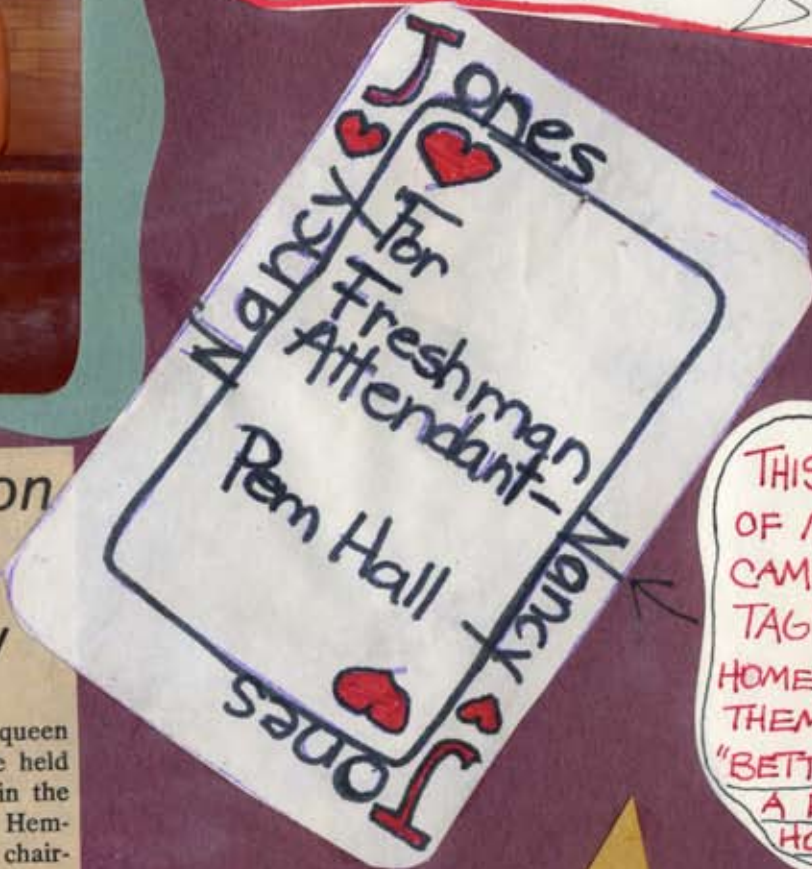 Jones
Nancy
For
Freshman
Attendant-
Pem Hall
Nancy
Jones
on
queen
held
in the
Hem-
chair-
THIS
OF
TAG
HOME
THEM
A